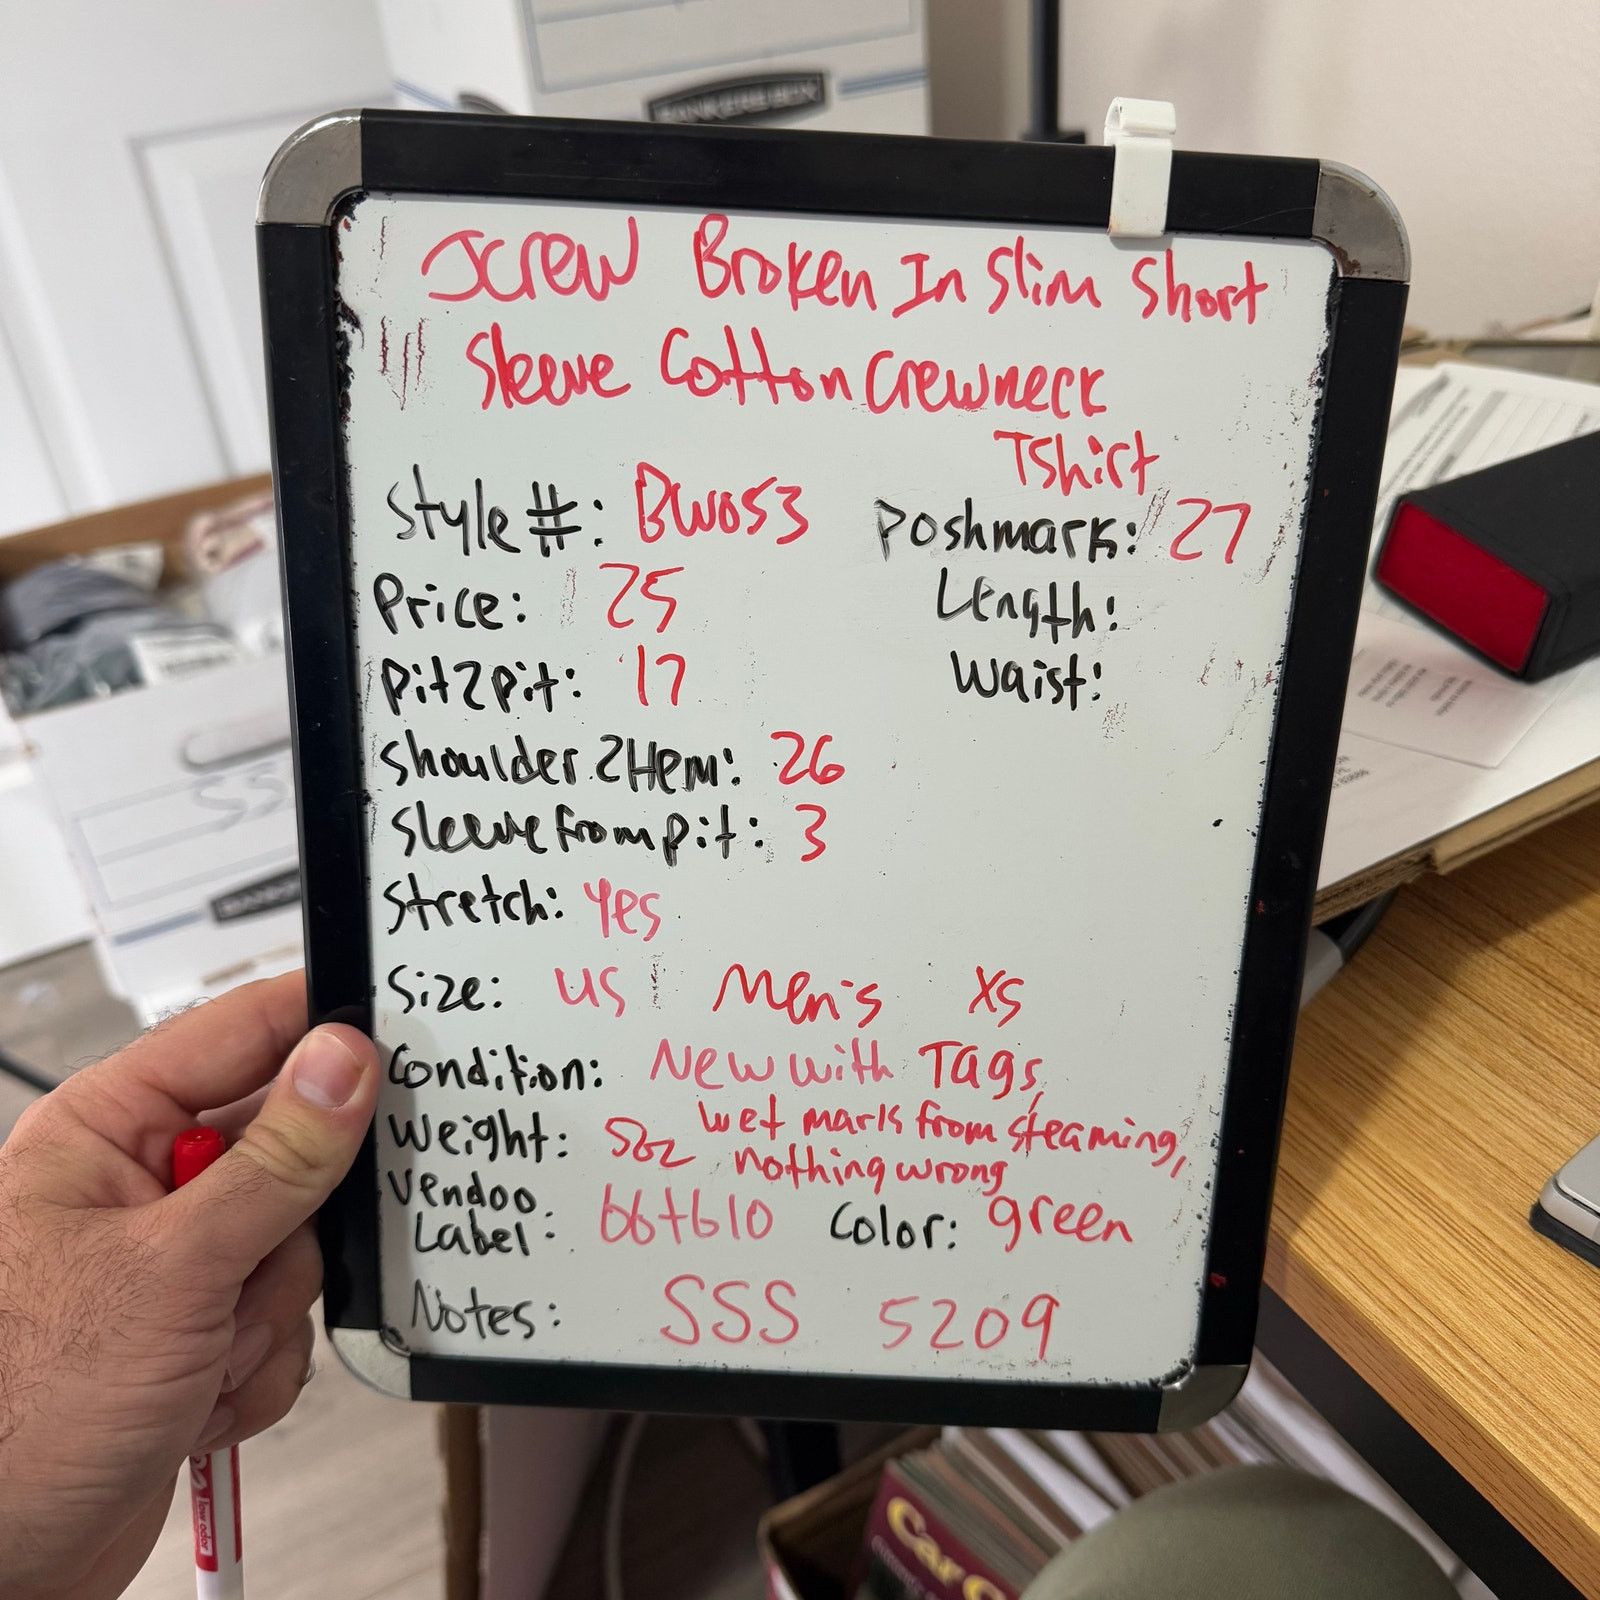 BANKERS BOX
Jcrew Broken In Slim Short
Sleeve Cotton Crewneck
Tshirt
Style #: BW053 Poshmark: 27
Price: 25 Length:
pit2pit: 17 Waist:
Shoulder2Hem: 26
Sleevefrompit: 3
Stretch: yes
Size: US Men's XS
Condition: New with Tags,
wet mark from steaming,
Weight: 5oz nothing wrong
Vendoo
Label: bb+b10 Color: green
Notes: SSS 5209
SS
BANK
low odor
Car